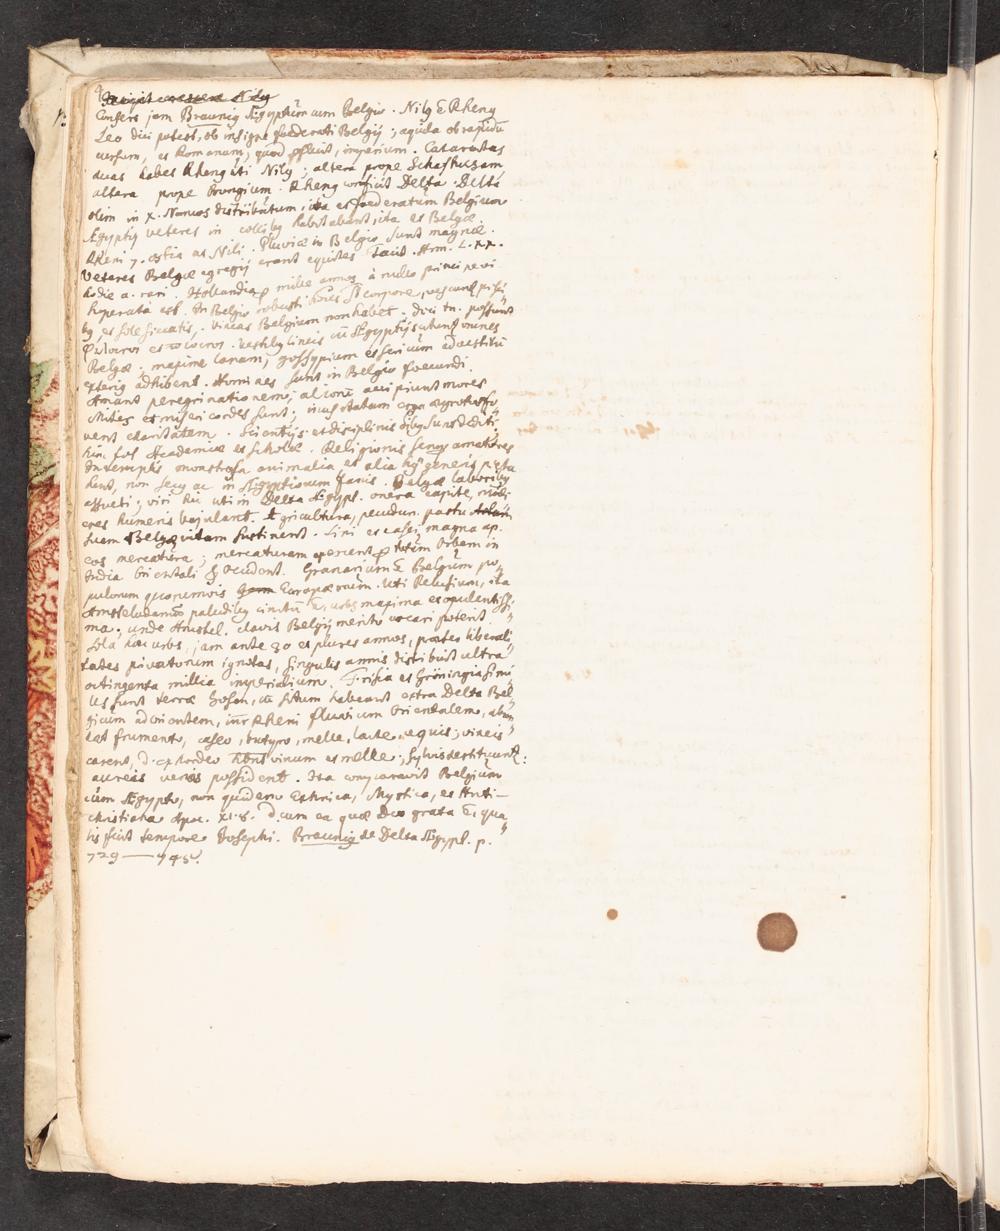 Incipit crescere Nilq
Confert jam Braunig Ægyptum cum Belgio. Nilq E Rheng
Leo dici potest, ob insigne fœderati Belgij; aquila ob rapidū
cursum, et Romanum, quod pfluit, imperium. Cataractas
duas habet Rheng uti Nilq; altera prope Schafhusam
altera prope . Rheng conficit Delta. Delta
olim in X. Nomos distributum, ita et fœderatum Belgium
Ægyptij veteres in collibq habitabant, ita et Belgæ.
Rheni 7. ostia ac Nili. Pluviæ in Belgio sunt magnæ.
Veteres Belgæ egregij erant equites Tacit. Ann. L. XX.
hodie a. rari. Hollandia p mille annos à nullo principe vi
superata est. In Belgio robusti hoīes st corpore, vescunt pisci
bq, et sole siccatis. Vineas Belgium non habet. Dici tn. possunt
et . Vestibq lineis cū Ægyptijs utunt omnes
Belgæ. maxime lanam, gossypium et sericum ad vestitū
exteriq adhibent. Homines sunt in Belgio fœcundi.
Amant peregrinationem, aliorū accipiunt mores
Mites et misericordes sunt;
vent charitatem. Scientijs et disciplinis sibq sunt dediti
hin. tot Academiæ et scholæ. Religionis senq amatores
In templis monstrosa animalia et alia hq generis picta
sunt, non secq ac in Ægyptiorum fanis. Belgæ laboribq
assueti; viri hic uti in Delta Ægypt. onera capite, muli-
eres humeris bajulant. Agricultura, pecudum pastu
suam Belgæ vitam sustinent. Lini et casei magna ap.
eos mercatura; mercaturam aperient p totum Orbem in
India Orientali & Occident. Granarium E Belgium po-
pulorum quorumvis Europæorum. Uti Pelusium, ita
Amstelodamū paludibq cinctū E, urbs maxima et opulentissi
ma; unde Amstel. clavis Belgij merito vocari poterit.
Sola hæc urbs, jam ante 30 et plures annos, præter liberali
tates privatorum ignotas, singulis annis distribuit ultra
octingenta millia imperialium. Frisia et Groningia simi
les sunt terræ Gosen, cū situm habeant extra Delta Bel
gicum ad orientem, iuxta Rheni fluvium Orientalem, abun
dat frumento, caseo, butyro, melle, lacte, equis; vineis
carent, d. ex hordeo vinum et melle; sylvis destituunt:
aureas venas possident. Ita comparavit Belgium
cum Ægypto, non quidem Ethnica, Mystica, et Anti-
christiana Apoc. XI. 8. d. cum ea quæ Deo grata E, qua
lis fuit tempore Josephi. Braunig de Delta Ægypt. p.
729 — 745.